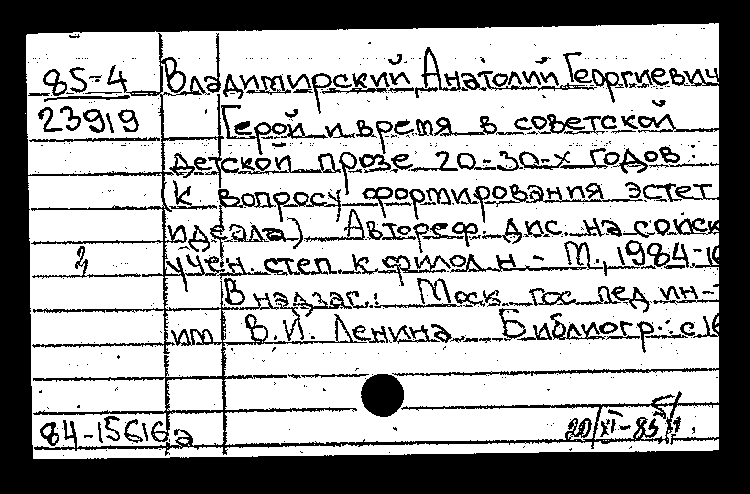 85-4 Владимирский, Анатолий Георгиевич
23919 Герой и время в советской
детской прозе 20-30-х годов:
(К вопросу формирования эстет
идеала) Автореф. дис. на соиск
учен. степ. к филол н - М., 1984-16
В надзаг.: Моск гос пед ин-т
им В.И. Ленина Библиогр.: с.16
84-15616а 20/XI-85